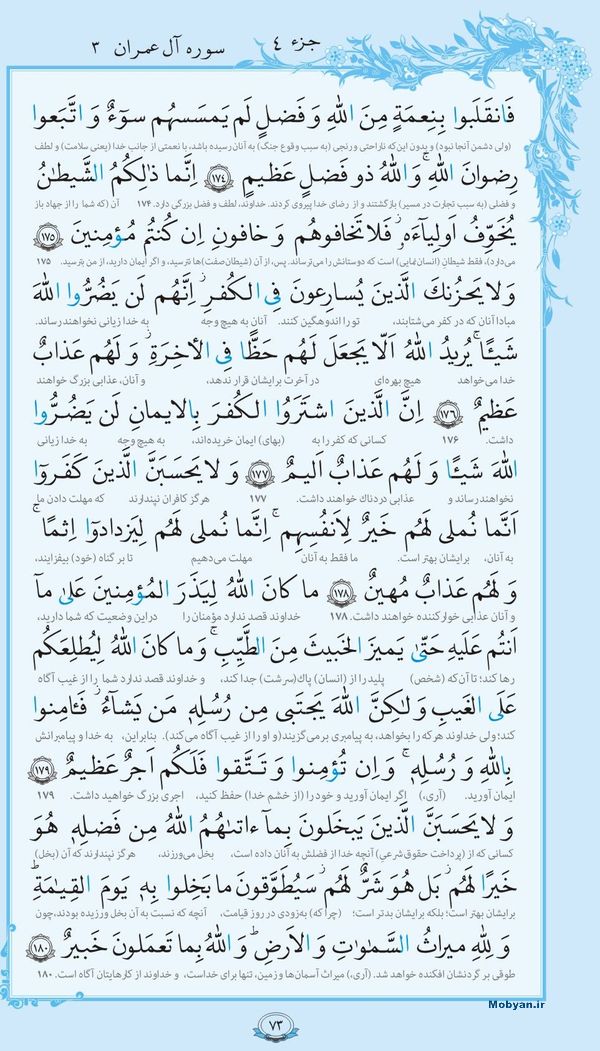 جزء ۴
سوره آل عمران ۳
فَانقَلَبوا بِنِعمَةٍ مِنَ اللّٰهِ وَ فَضلٍ لَم يَمسَسهُم سوءٌ وَ اتَّبَعوا
(ولی دشمن آنجا نبود) و بدون این که ناراحتی و رنجی (به سبب وقوع جنگ) به آنان رسیده باشد، با نعمتی از جانب خدا (یعنی سلامت) و لطف
رِضوانَ اللّٰهِ ۗ وَ اللّٰهُ ذو فَضلٍ عَظيمٍ ﴿١٧٤﴾ اِنَّما ذٰلِكُمُ الشَّيطٰنُ
و فضلی (به سبب تجارت در مسیر) بازگشتند و از رضای خدا پیروی کردند. خداوند، لطف و فضل بزرگی دارد. ۱۷۴ آن (که شما را از جهاد باز
يُخَوِّفُ اَولِياءَهُ ۖ فَلا تَخافوهُم وَ خافونِ اِن كُنتُم مُؤمِنينَ ﴿١٧٥﴾
می‌دارد)، فقط شیطان (انسان‌نمایی) است که دوستانش را می‌ترساند. پس، از آن (شیطان‌صفت‌ها) نترسید، و اگر ایمان دارید، از من بترسید. ۱۷۵
وَ لا يَحزُنكَ الَّذينَ يُسارِعونَ فِى الكُفرِ ۚ اِنَّهُم لَن يَضُرُّوا اللّٰهَ
مبادا آنان که در کفر می‌شتابند، تو را اندوهگین کنند. آنان به هیچ وجه به خدا زیانی نخواهند رساند.
شَيـًٔا ۗ يُريدُ اللّٰهُ اَلّا يَجعَلَ لَهُم حَظًّا فِى الأٰخِرَةِ ۖ وَ لَهُم عَذابٌ
خدا می‌خواهد هیچ بهره‌ای در آخرت برایشان قرار ندهد، و آنان، عذابی بزرگ خواهند
عَظيمٌ ﴿١٧٦﴾ اِنَّ الَّذينَ اشتَرَوُا الكُفرَ بِالايمانِ لَن يَضُرُّوا
داشت. ۱۷۶ کسانی که کفر را به (بهای) ایمان خریده‌اند، به هیچ وجه به خدا زیانی
اللّٰهَ شَيـًٔا وَ لَهُم عَذابٌ اَليمٌ ﴿١٧٧﴾ وَ لا يَحسَبَنَّ الَّذينَ كَفَروا
نخواهند رساند و عذابی دردناک خواهند داشت. ۱۷۷ هرگز کافران نپندارند که مهلت دادن ما
اَنَّما نُملى لَهُم خَيرٌ لِاَنفُسِهِم ۚ اِنَّما نُملى لَهُم لِيَزدادوا اِثمًا ۚ
به آنان، برایشان بهتر است. ما فقط به آنان مهلت می‌دهیم تا بر گناه (خود) بیفزایند،
وَ لَهُم عَذابٌ مُهينٌ ﴿١٧٨﴾ ما كانَ اللّٰهُ لِيَذَرَ المُؤمِنينَ عَلىٰ ما
و آنان عذابی خوار کننده خواهند داشت. ۱۷۸ خداوند قصد ندارد مؤمنان را در این وضعیت که شما دارید،
اَنتُم عَلَيهِ حَتّىٰ يَميزَ الخَبيثَ مِنَ الطَّيِّبِ ۗ وَ ما كانَ اللّٰهُ لِيُطلِعَكُم
رها کند؛ تا آن‌که (شخص) پلید را از (انسان) پاک(سرشت) جدا کند، و خداوند قصد ندارد شما را از غیب آگاه
عَلَى الغَيبِ وَ لٰكِنَّ اللّٰهَ يَجتَبى مِن رُسُلِهِ مَن يَشاءُ ۖ فَـٔامِنوا
کند؛ ولی خداوند هر که را بخواهد، به پیامبری بر می‌گزیند (و او را از غیب آگاه می‌کند). بنابراین، به خدا و پیامبرانش
بِاللّٰهِ وَ رُسُلِهِ ۚ وَ اِن تُؤمِنوا وَ تَتَّقوا فَلَكُم اَجرٌ عَظيمٌ ﴿١٧٩﴾
ایمان آورید. (آری،) اگر ایمان آورید و خود را (از خشم خدا) حفظ کنید، اجری بزرگ خواهید داشت. ۱۷۹
وَ لا يَحسَبَنَّ الَّذينَ يَبخَلونَ بِما ءاتىٰهُمُ اللّٰهُ مِن فَضلِهِ هُوَ
کسانی که از (پرداخت حقوق شرعی) آنچه خدا از فضلش به آنان داده است، بخل می‌ورزند، هرگز نپندارند که آن (بخل)
خَيرًا لَهُم ۖ بَل هُوَ شَرٌّ لَهُم ۖ سَيُطَوَّقونَ ما بَخِلوا بِهِ يَومَ القِيٰمَةِ ۗ
برایشان بهتر است؛ بلکه برایشان بدتر است؛ (چرا که) به‌زودی در روز قیامت، آنچه که نسبت به آن بخل ورزیده بودند، چون
وَ لِلّٰهِ ميراثُ السَّمٰوٰتِ وَ الاَرضِ ۗ وَ اللّٰهُ بِما تَعمَلونَ خَبيرٌ ﴿١٨٠﴾
طوقی بر گردنشان افکنده خواهد شد. (آری،) میراث آسمان‌ها و زمین، تنها برای خداست، و خداوند از کارهایتان آگاه است. ۱۸۰
۷۳
Mobyan.ir